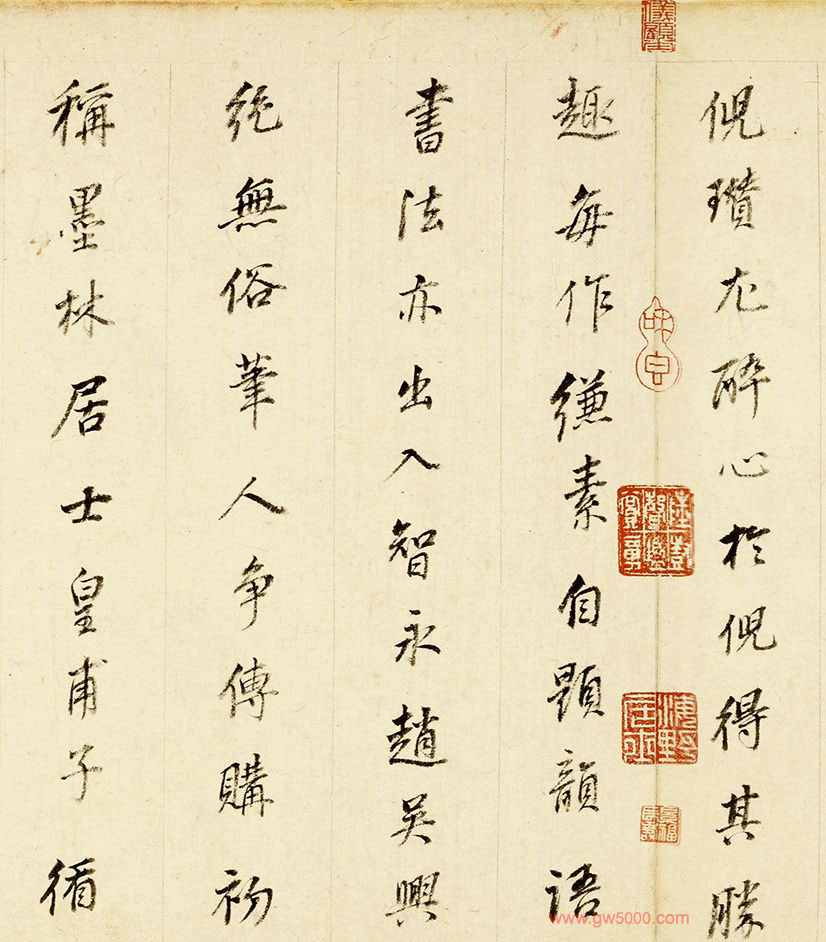 倪瓚尤醉心於倪得其勝
趣每作縑素自題韻語
書法亦出入智永趙吳興
絕無俗筆人爭傳購初
稱墨林居士皇甫子循
www.gw5000.com